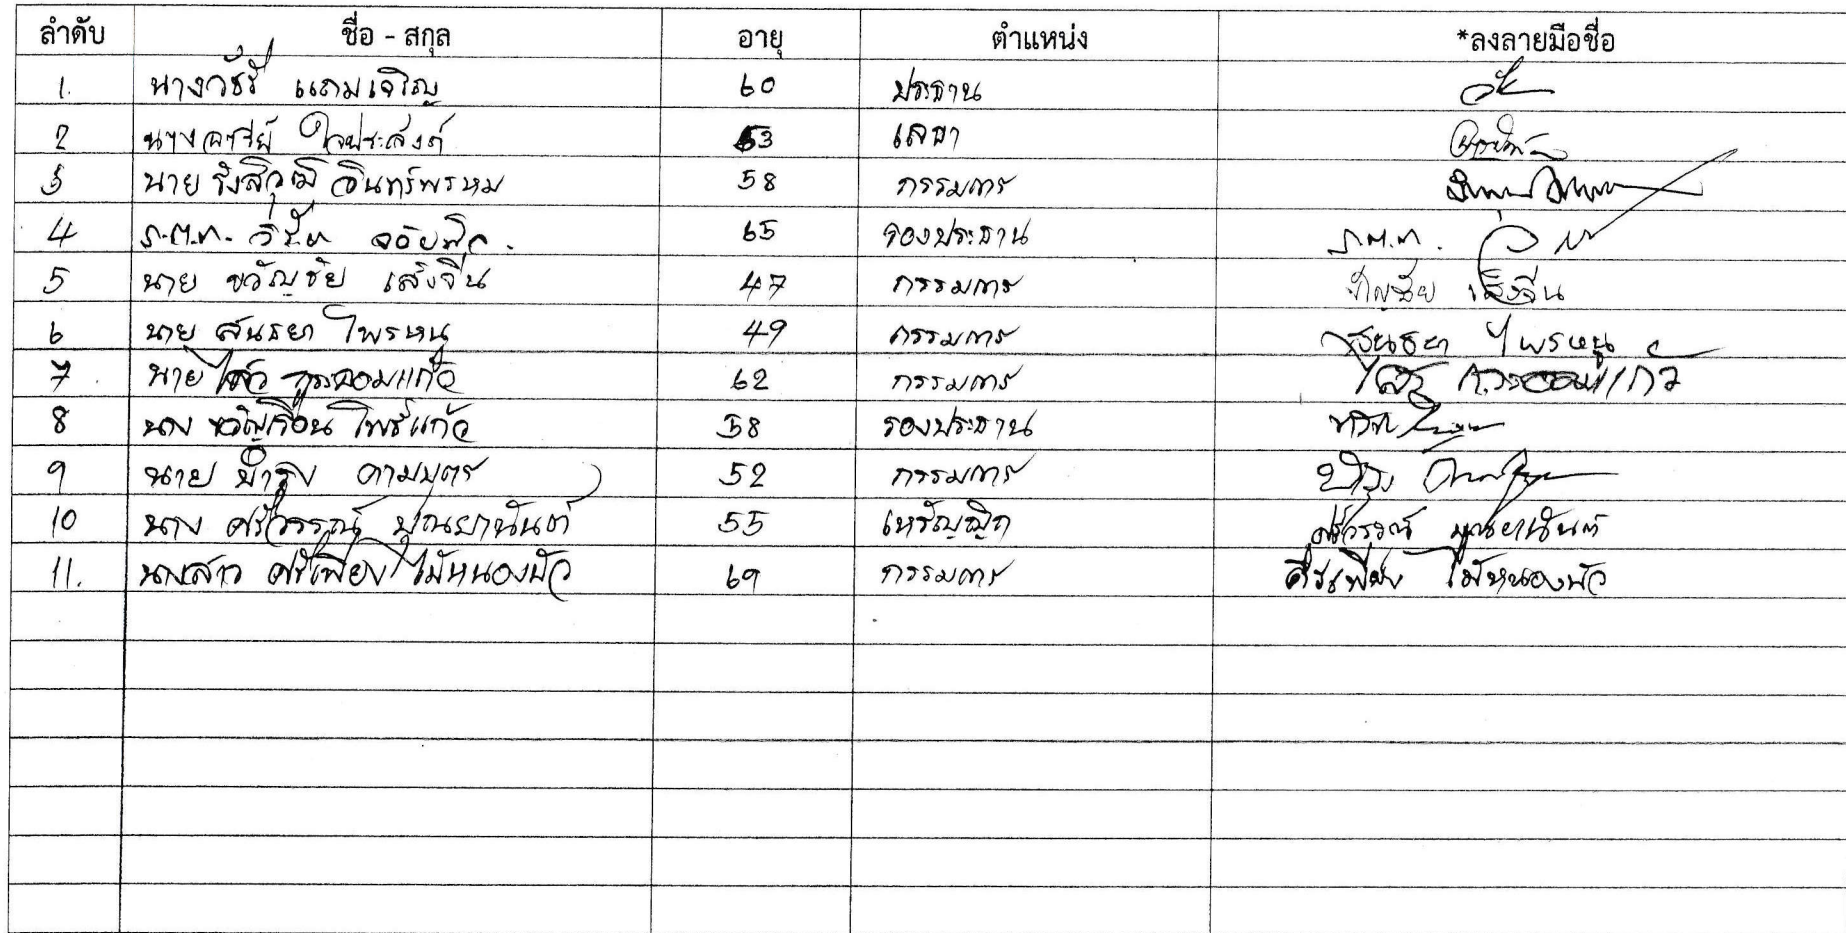 ลำดับ ชื่อ - สกุล อายุ ตำแหน่ง *ลงลายมือชื่อ
1. นางวัชรี แถมเจริญ 60 ประธาน
2 นาง ใจประสงค์ 53 เลขา
3 นาย รังสิวุฒิ อินทร์พรหม 58 กรรมการ
4 ร.ต.ท. วิชัย 65 รองประธาน ร.ต.ท.
5 นาย ขวัญชัย เส้งจีน 47 กรรมการ ขวัญชัย เส้งจีน
6 นาย สันธยา ไพรหนู 49 กรรมการ สันธยา ไพรหนู
7 นาย 62 กรรมการ
8 นาง ขวัญเรือน โพธิ์แก้ว 58 รองประธาน
9 นาย บำรุง คามบุตร 52 กรรมการ บำรุง
10 นาง ศรีวรรณ์ บุณยานันต์ 55 เหรัญญิก ศรีวรรณ์ บุณยานันต์
11. นางสาว ศรีเพียง ไม้หนองบัว 69 กรรมการ ศรีเพียง ไม้หนองบัว